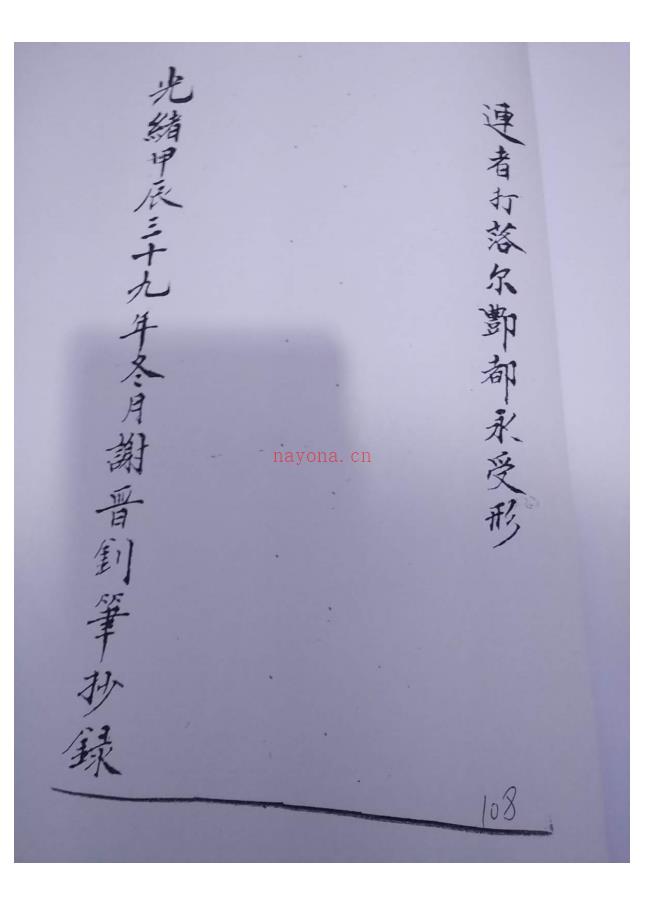 連者打落尔酆都永受形
光緒甲辰三十九年冬月謝晋釗筆抄録
nayona.cn
108